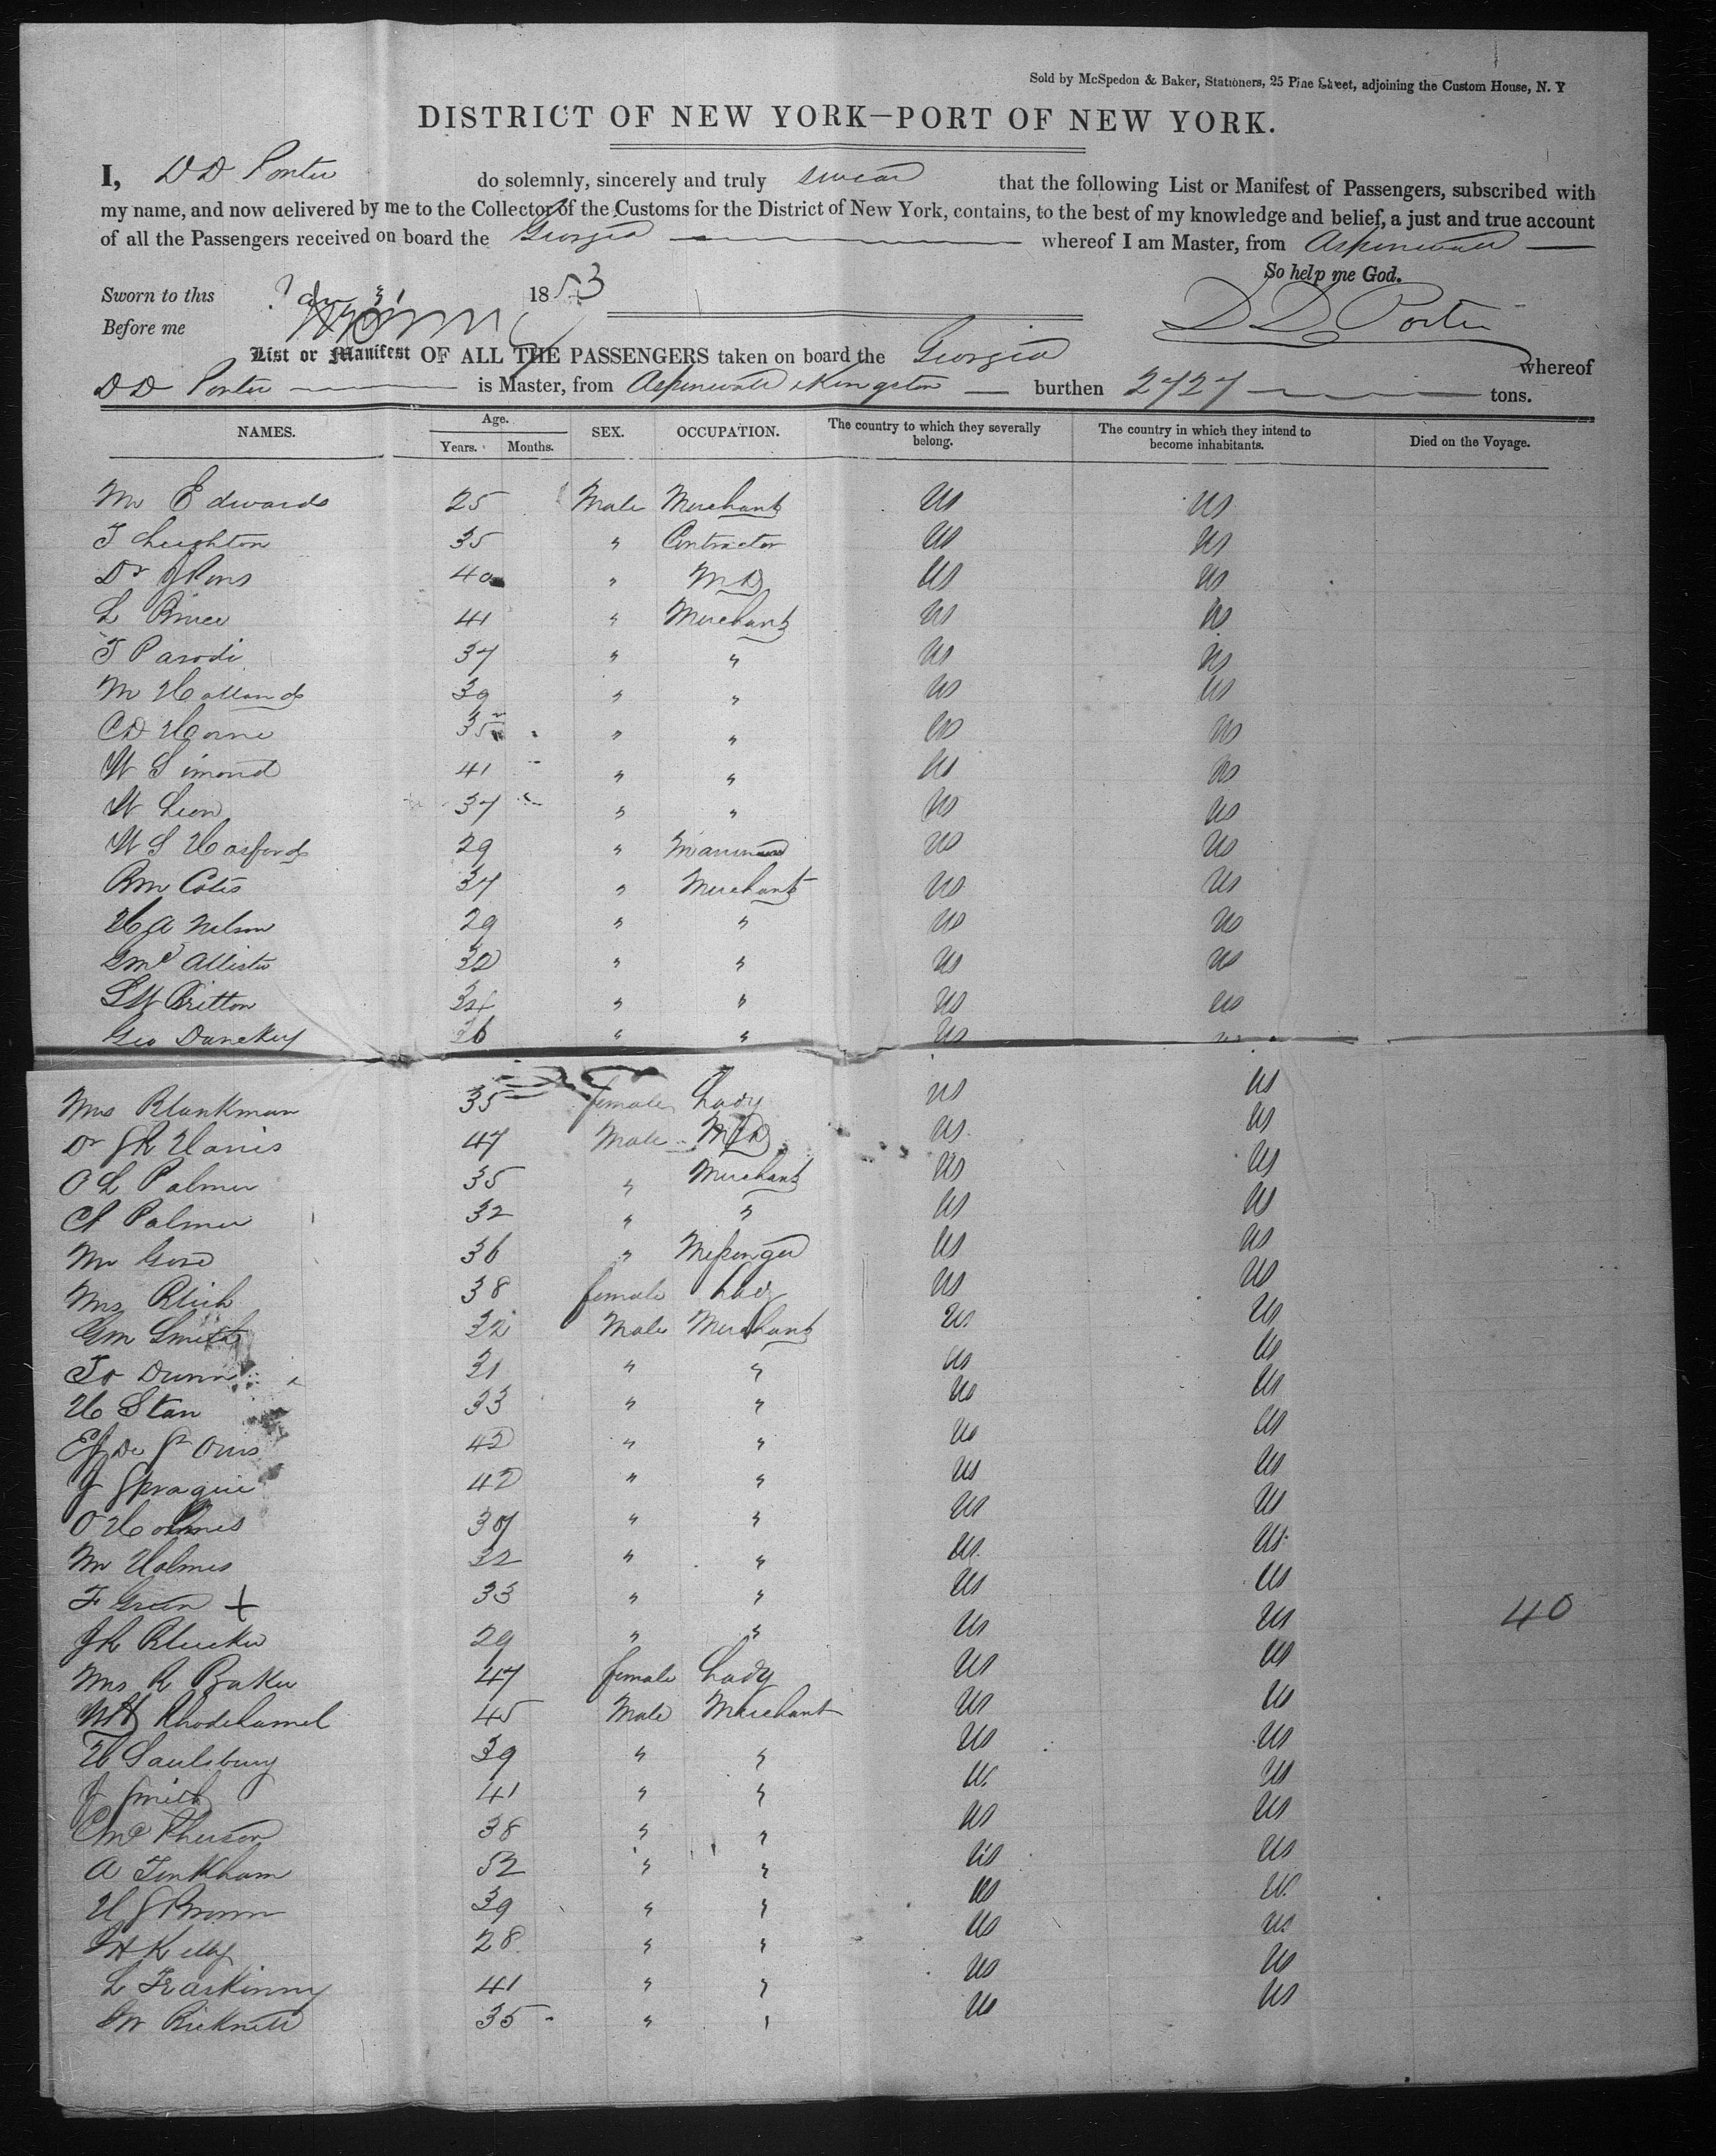 Sold by McSpedon & Baker, Stationers, 25 Pine Street, adjoining the Custom House, N. Y
DISTRICT OF NEW YORK—PORT OF NEW YORK.
I, D D Porter do solemnly, sincerely and truly swear that the following List or Manifest of Passengers, subscribed with
my name, and now delivered by me to the Collector of the Customs for the District of New York, contains, to the best of my knowledge and belief, a just and true account
of all the Passengers received on board the Georgia whereof I am Master, from Aspinwall
So help me God.
Sworn to this 31 1853
Before me D D Porter
List or Manifest OF ALL THE PASSENGERS taken on board the Georgia whereof
D D Porter is Master, from Aspinwall & Kingston burthen 2727 tons.
NAMES. Age. Years. Months. SEX. OCCUPATION. The country to which they severally belong. The country in which they intend to become inhabitants. Died on the Voyage.
Mr Edwards 25 Male Merchant US US
T Leighton 35 " Contractor US US
Dr 40 " MD US US
L Bruce 41 " Merchant US US
T Parodi 37 " " US US
M Holland 39 " " US US
CD Horne 35 " " US US
W Simond 41 " " US US
W Leon 37 " " US US
W S Hasford 29 " US US
Rm Cotes 37 " Merchant US US
H A Nelson 29 " " US US
G Mc Allister 32 " " US US
S W Britton 34 " " US US
Geo Danckey 36 " " US US
Mrs Blankman 35 female Lady US US
Dr J R Harris 47 Male MD US US
O L Palmer 35 " Merchant US US
C A Palmer 32 " " US US
Mr Gore 36 " Messenger US US
Mrs Blich 38 female Lady US US
G m Smith 32 Male Merchant US US
Jo Dunn 31 " " US US
H Starr 33 " " US US
42 " " US US
J Sprague 42 " " US US
O Holmes 37 " " US US
Mr Holmes 32 " " US US
F Green + 33 " " US US
40
J R Blucker 29 " " US US
Mrs R Baker 47 female Lady US US
Rhodehamel 45 Male Merchant US US
H Saulsbury 39 " " US US
J Smith 41 " " US US
C Mc Pherson 38 " " US US
A Tinkham 52 " " US US
H J Brown 39 " " US US
W Kelly 28 " " US US
L Fraskinny 41 " " US US
Bicknell 35 " " US US